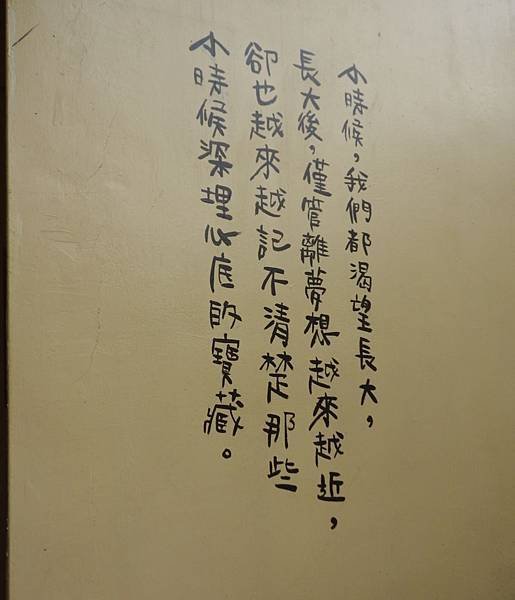 小時候，我們都渴望長大，
長大後，僅管離夢想越來越近，
卻也越來越記不清楚那些
小時候深埋心底的寶藏。